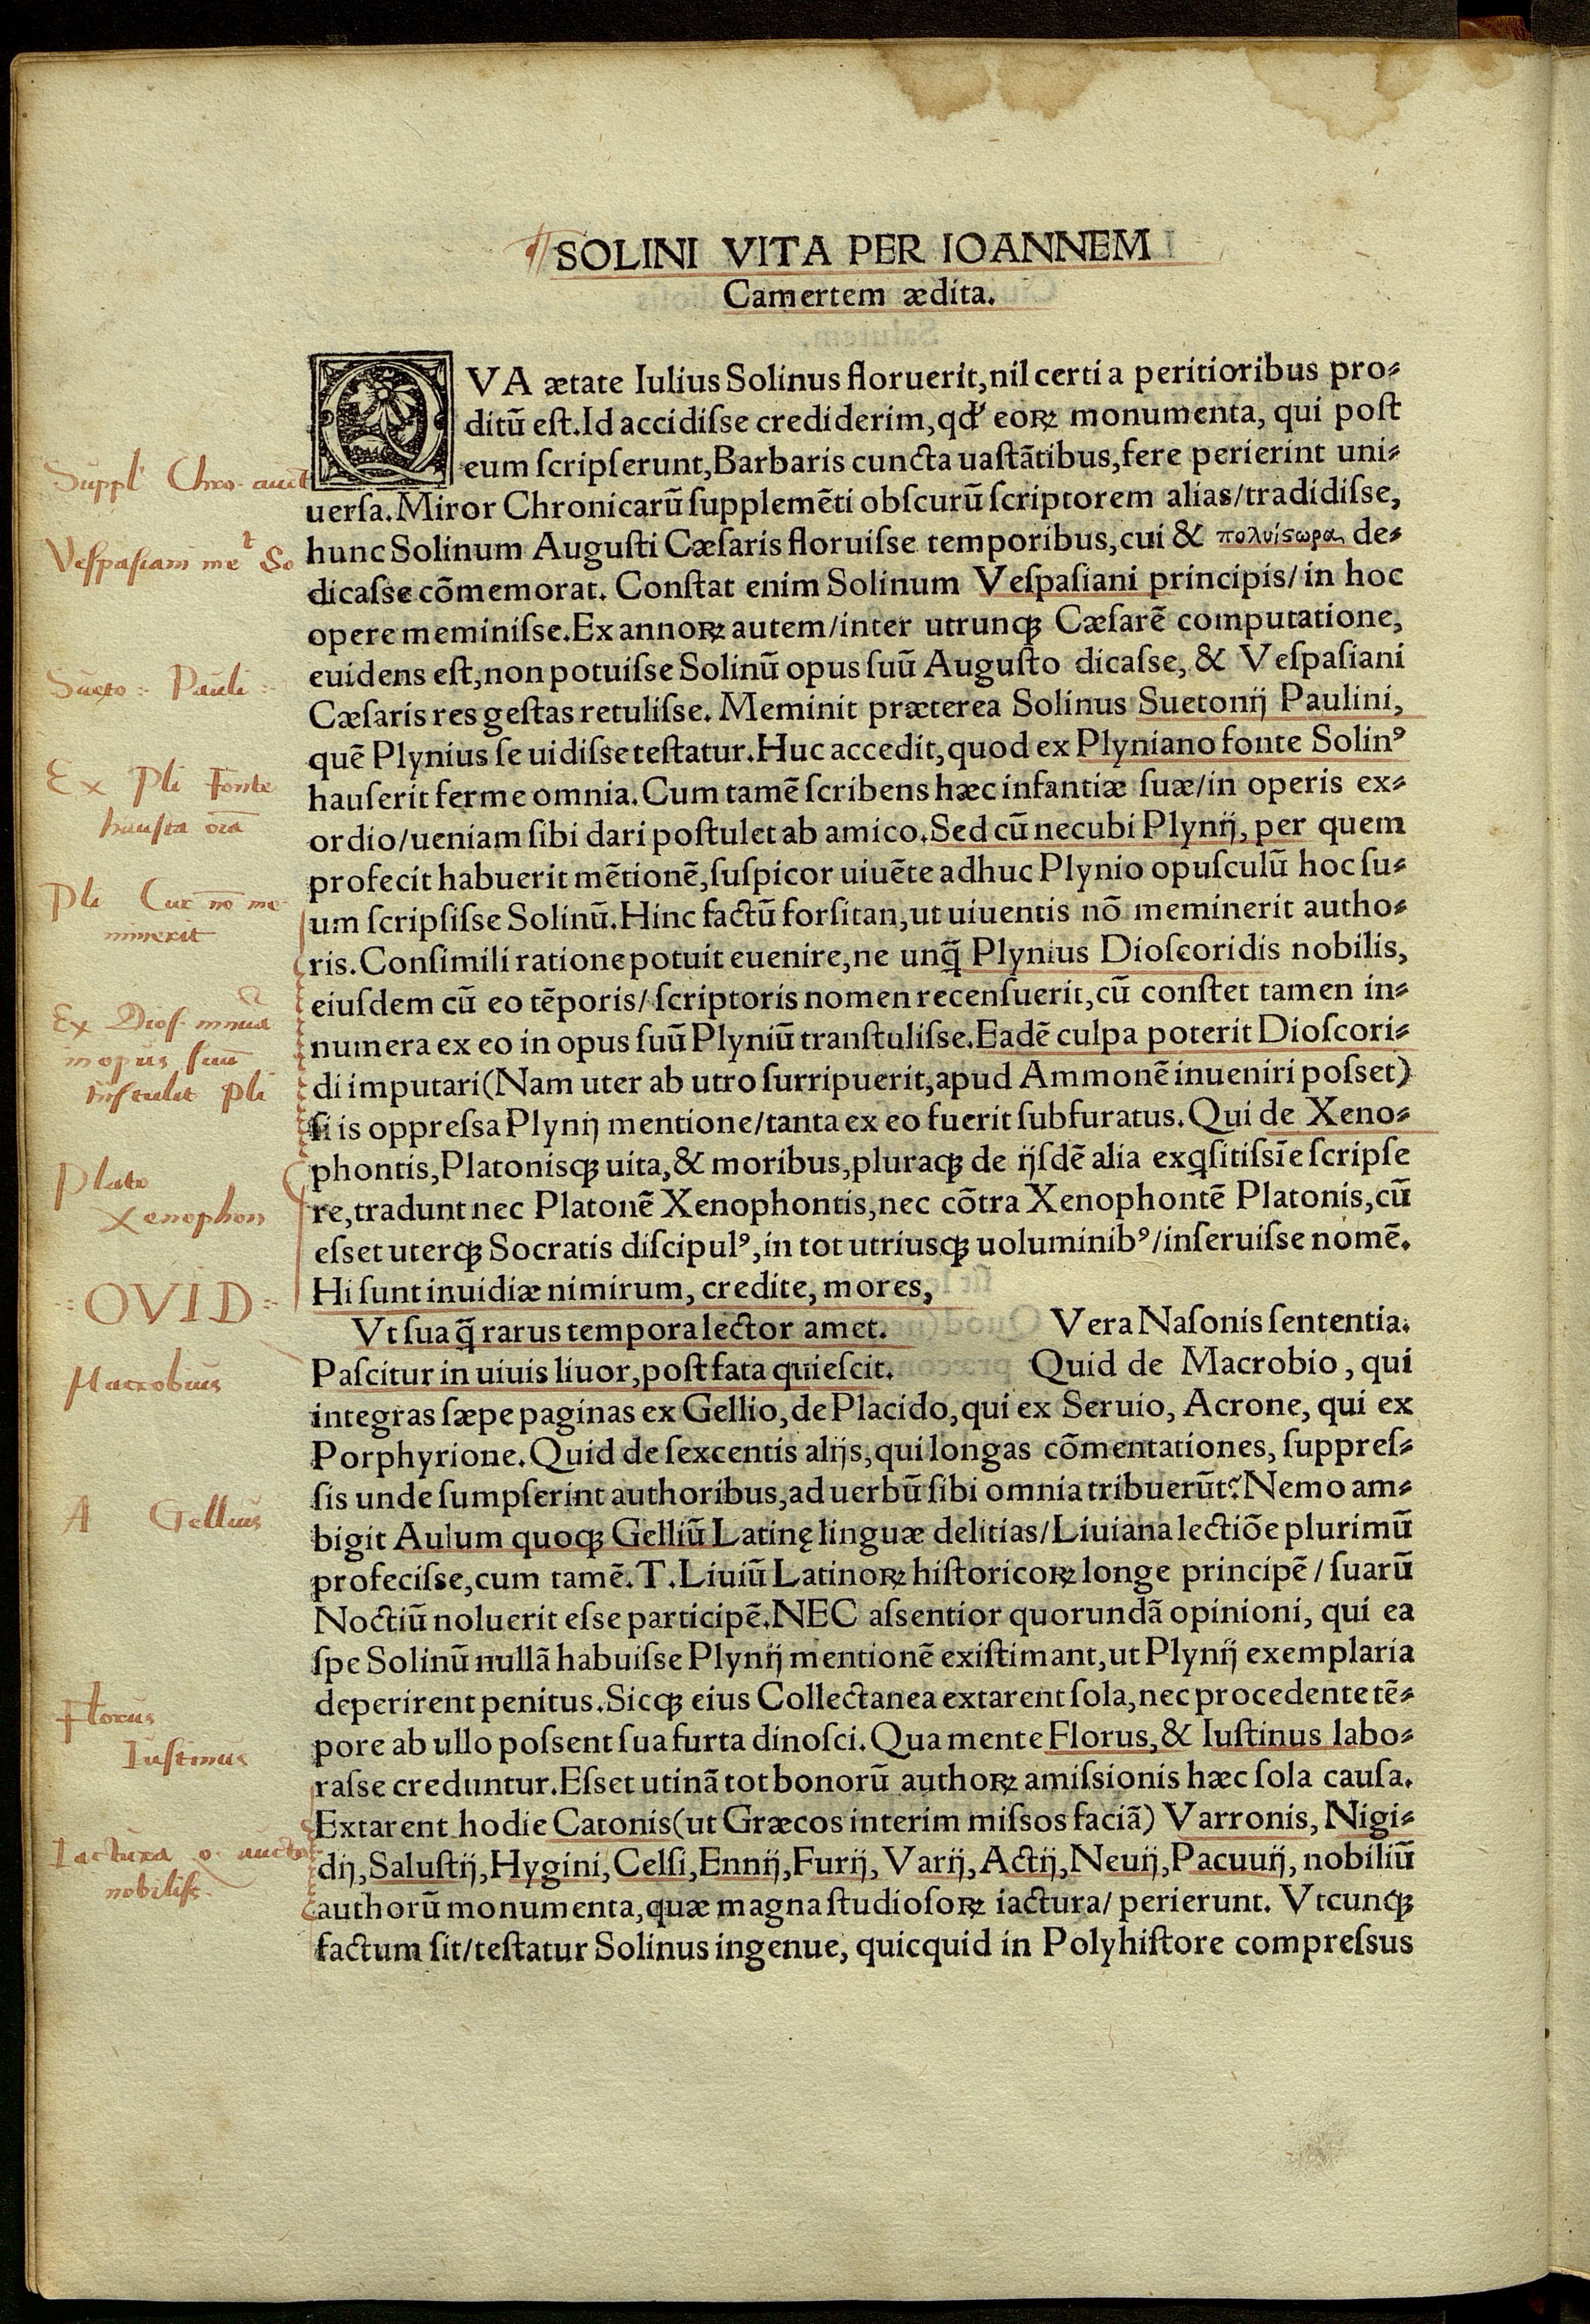 SOLINI VITA PER IOANNEM
Camertem ædita.
QVA ætate Iulius Solinus floruerit, nil certi a peritioribus pro⸗
ditū eſt. Id accidiſse crediderim, qđ eoꝝ monumenta, qui poſt
eum ſcripſerunt, Barbaris cuncta uaſtātibus, fere perierint uni⸗
uerſa. Miror Chronicarū ſupplemēti obſcurū ſcriptorem alias/tradidiſse,
hunc Solinum Auguſti Cæſaris floruiſse temporibus, cui & πολυίϛωρα de⸗
dicaſse cōmemorat. Conſtat enim Solinum Veſpaſiani principis/in hoc
opere meminiſse. Ex annoꝝ autem/inter utrunqꝫ Cæſarē computatione,
euidens eſt, non potuiſse Solinū opus ſuū Auguſto dicaſse, & Veſpaſiani
Cæſaris res geſtas retuliſse. Meminit præterea Solinus Suetonij Paulini,
quē Plynius ſe uidiſse teſtatur. Huc accedit, quod ex Plyniano fonte Solinꝰ
hauſerit ferme omnia. Cum tamē ſcribens hæc infantiæ ſuæ/in operis ex⸗
ordio/ueniam ſibi dari poſtulet ab amico. Sed cū necubi Plynij, per quem
profecit habuerit mētionē, ſuſpicor uiuēte adhuc Plynio opuſculū hoc ſu⸗
um ſcripſiſse Solinū. Hinc factū forſitan, ut uiuentis nō meminerit autho⸗
ris. Conſimili ratione potuit euenire, ne unq̄ Plynius Dioſcoridis nobilis,
eiuſdem cū eo tēporis/ſcriptoris nomen recenſuerit, cū conſtet tamen in⸗
numera ex eo in opus ſuū Plyniū tranſtuliſse. Eadē culpa poterit Dioſcori⸗
di imputari (Nam uter ab utro ſurripuerit, apud Ammonē inueniri poſset)
ſi is oppreſsa Plynij mentione/tanta ex eo fuerit ſubfuratus. Qui de Xeno⸗
phontis, Platonisqꝫ uita, & moribus, pluraqꝫ de ijſdē alia exqͥſitiſsīe ſcripſe
re, tradunt nec Platonē Xenophontis, nec cōtra Xenophontē Platonis, cū
eſset uterqꝫ Socratis diſcipulꝰ, in tot utriusqꝫ uoluminibꝰ/inſeruiſse nomē.
Hi ſunt inuidiæ nimirum, credite, mores,
Vt ſua q̄ rarus tempora lector amet. Vera Naſonis ſententia.
Paſcitur in uiuis liuor, poſt fata quieſcit. Quid de Macrobio, qui
integras ſæpe paginas ex Gellio, de Placido, qui ex Seruio, Acrone, qui ex
Porphyrione. Quid de ſexcentis alijs, qui longas cōmentationes, ſuppreſ⸗
ſis unde ſumpſerint authoribus, ad uerbū ſibi omnia tribuerūt? Nemo am⸗
bigit Aulum quoqꝫ Gelliū Latinę linguæ delitias/Liuiana lectiōe plurimū
profeciſse, cum tamē. T. Liuiū Latinoꝝ hiſtoricoꝝ longe principē/ſuarū
Noctiū noluerit eſse participē. NEC aſsentior quorundā opinioni, qui ea
ſpe Solinū nullā habuiſse Plynij mentionē exiſtimant, ut Plynij exemplaria
deperirent penitus. Sicqꝫ eius Collectanea extarent ſola, nec procedente tē⸗
pore ab ullo poſsent ſua furta dinoſci. Qua mente Florus, & Iuſtinus labo⸗
raſse creduntur. Eſset utinā tot bonorū authoꝝ amiſsionis hæc ſola cauſa.
Extarent hodie Catonis (ut Græcos interim miſsos faciā) Varronis, Nigi⸗
dij, Saluſtij, Hygini, Celſi, Ennij, Furij, Varij, Actij, Neuij, Pacuuij, nobiliū
authorū monumenta, quæ magna ſtudioſoꝝ iactura/perierunt. Vtcunqꝫ
factum ſit/teſtatur Solinus ingenue, quicquid in Polyhiſtore compreſsus
Suppl Chro. auct
Veſpaſiani me^t So
Sueto: Pauli:
Ex Pli Fonte
hauſta oīa
Pli Cur nō me
minerit
Ex Dioſ.
in opus ſuū
Pli
Plato
Xenophon
:OVID:
Macrobius
A Gellius
Florus
Iuſtinus
Iactura
nobiliſſ.